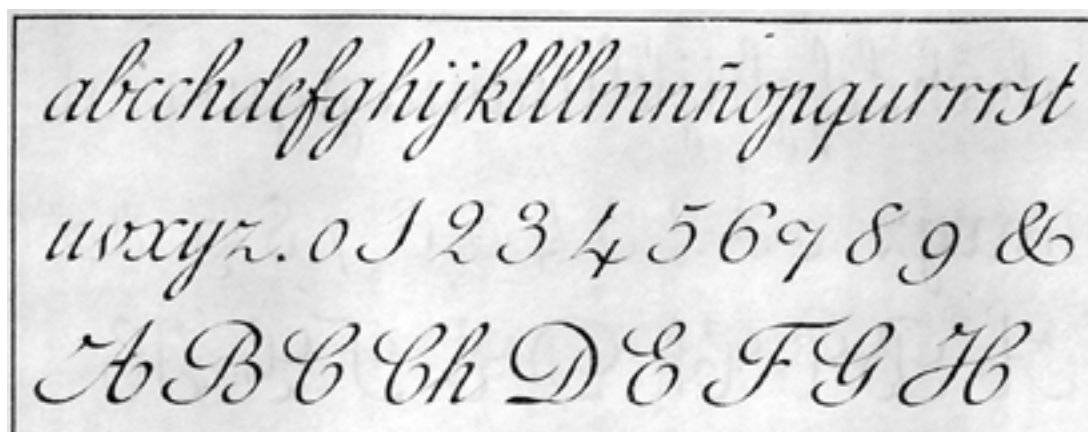 abcchdefghijklllmnnñopqurrrst
uvxyz. 0 1 2 3 4 5 6 7 8 9 &
A B C Ch D E F G H